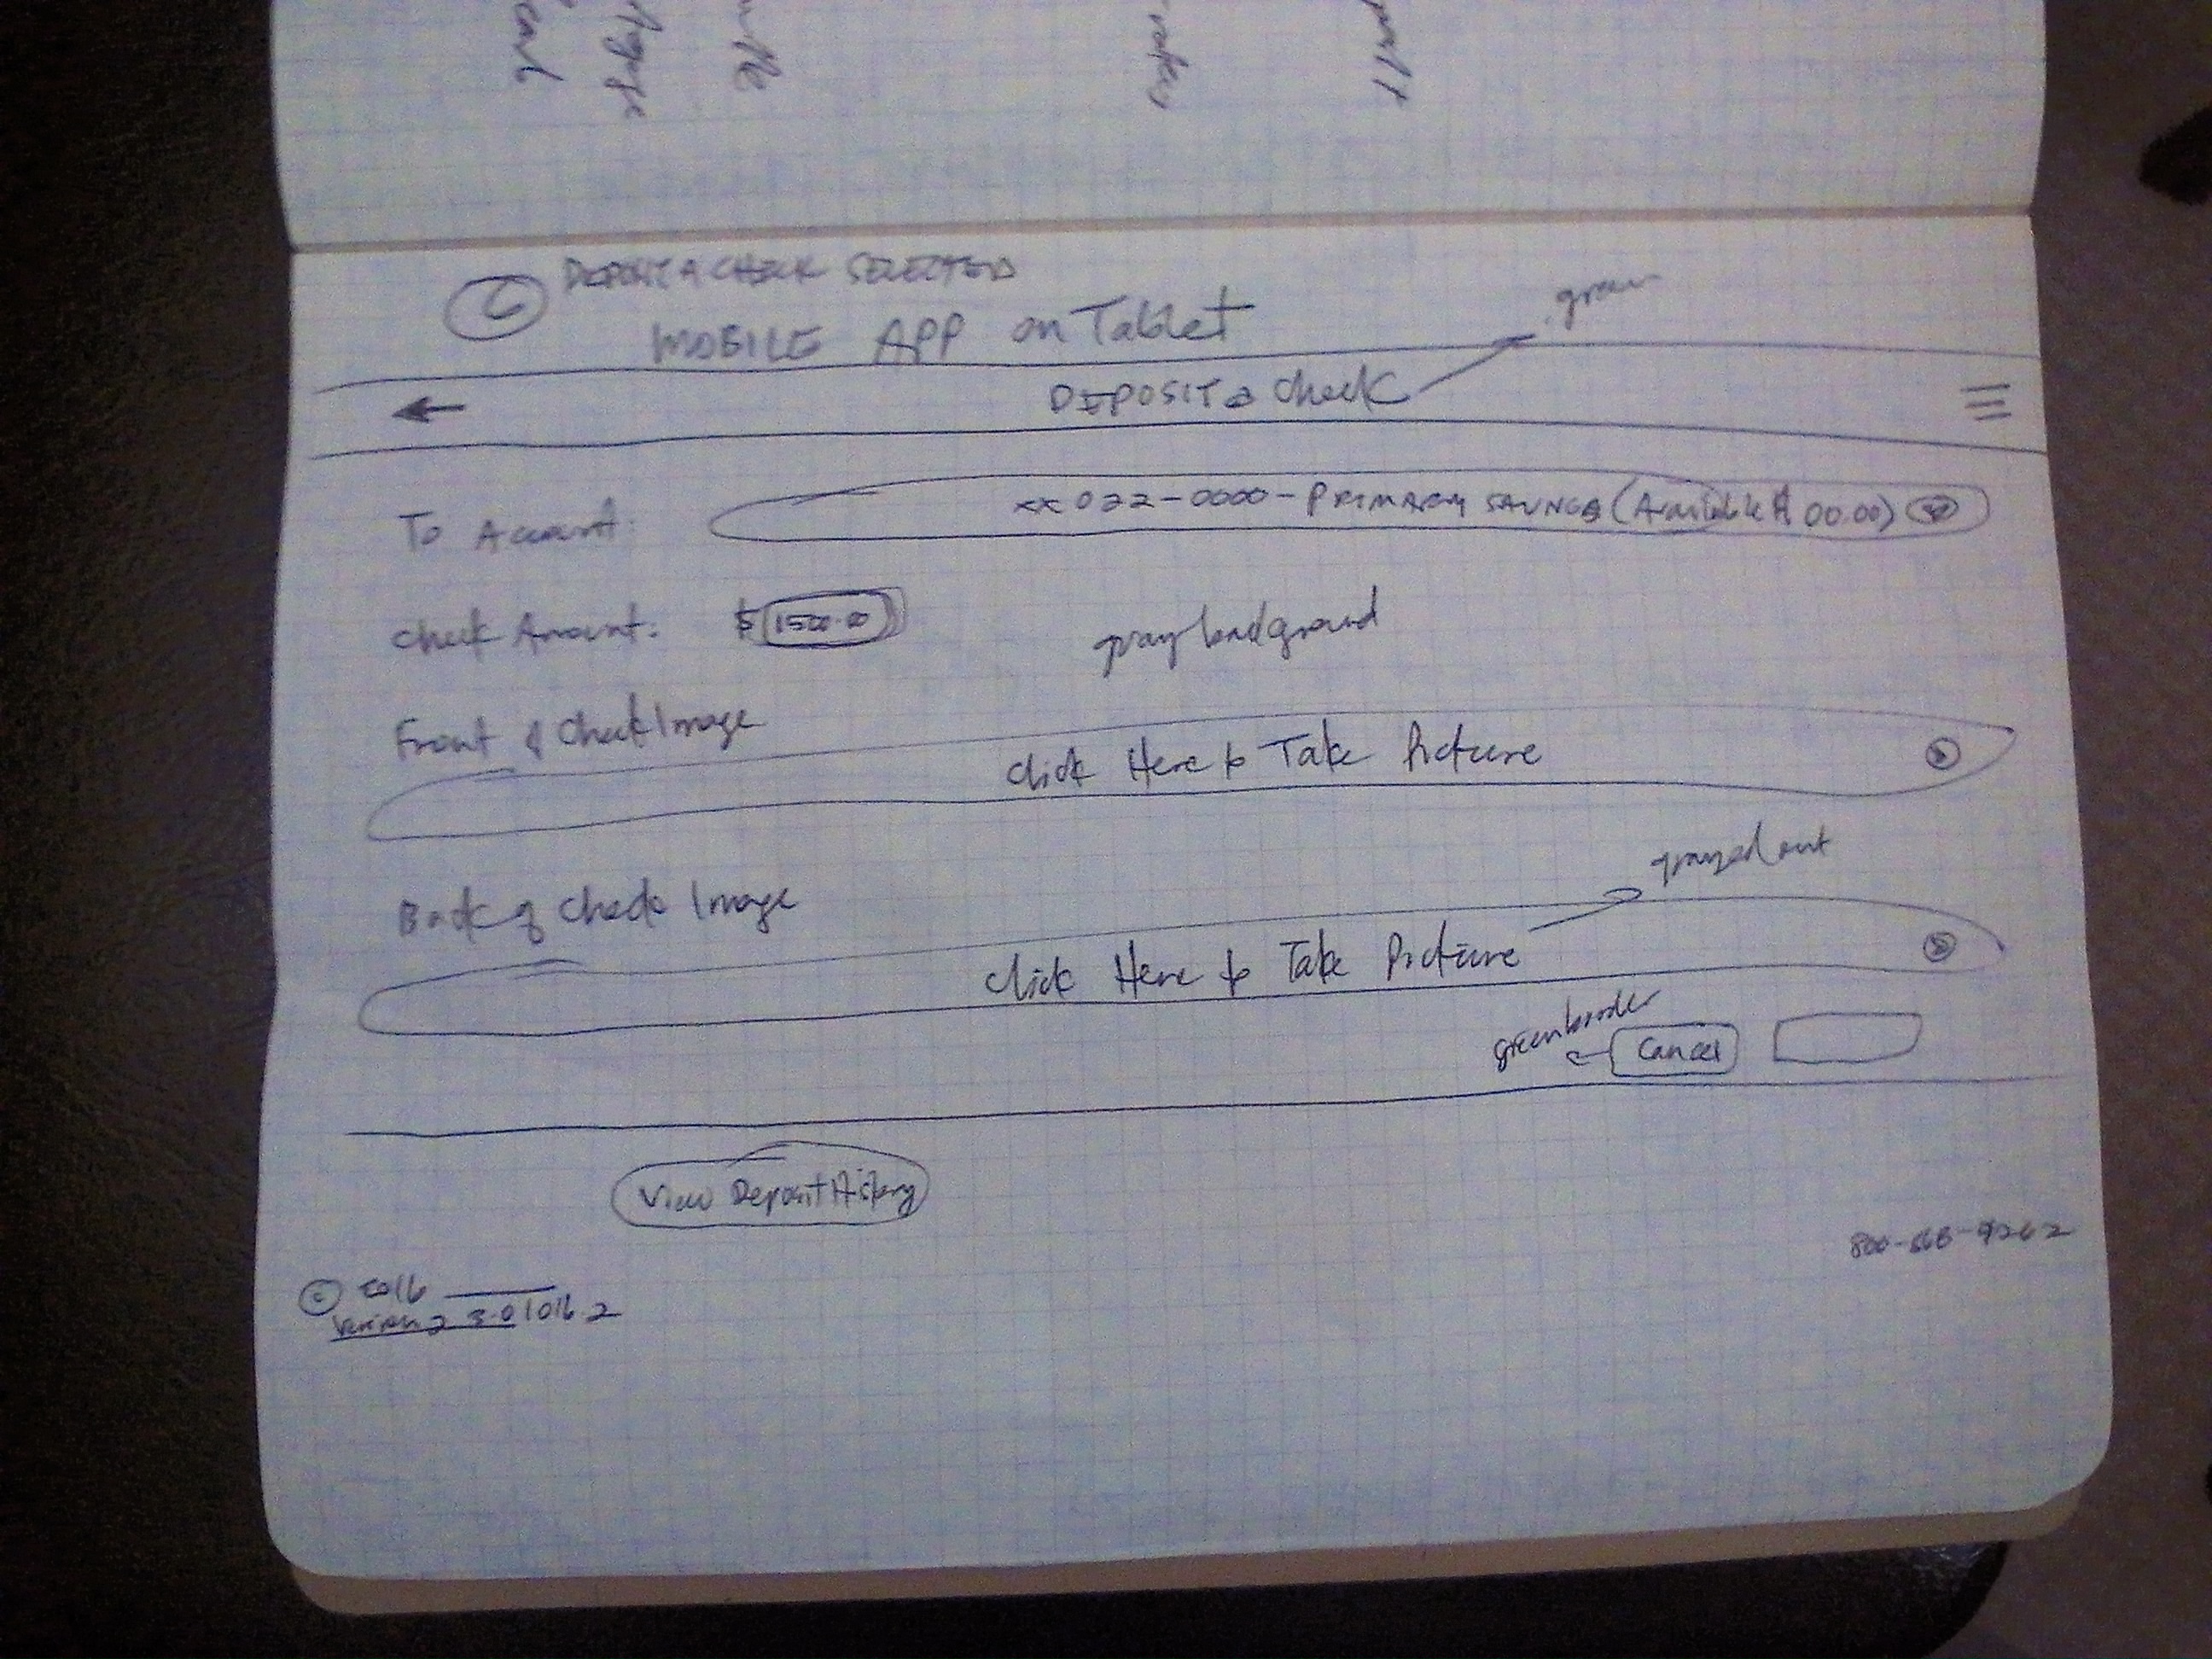 6 DEPOSIT A CHECK SELECTED
MOBILE APP on Tablet
green
DEPOSIT a Check
To Account: xx022-0000-PRIMARY SAVINGS (Available $ 00.00)
Check Amount: $ 1500.00
gray background
Front of Check Image
Click Here to Take Picture
grayed out
Back of Check Image
Click Here to Take Picture
green border
Cancel
View Deposit History
800-568-9262
© 2016
Version